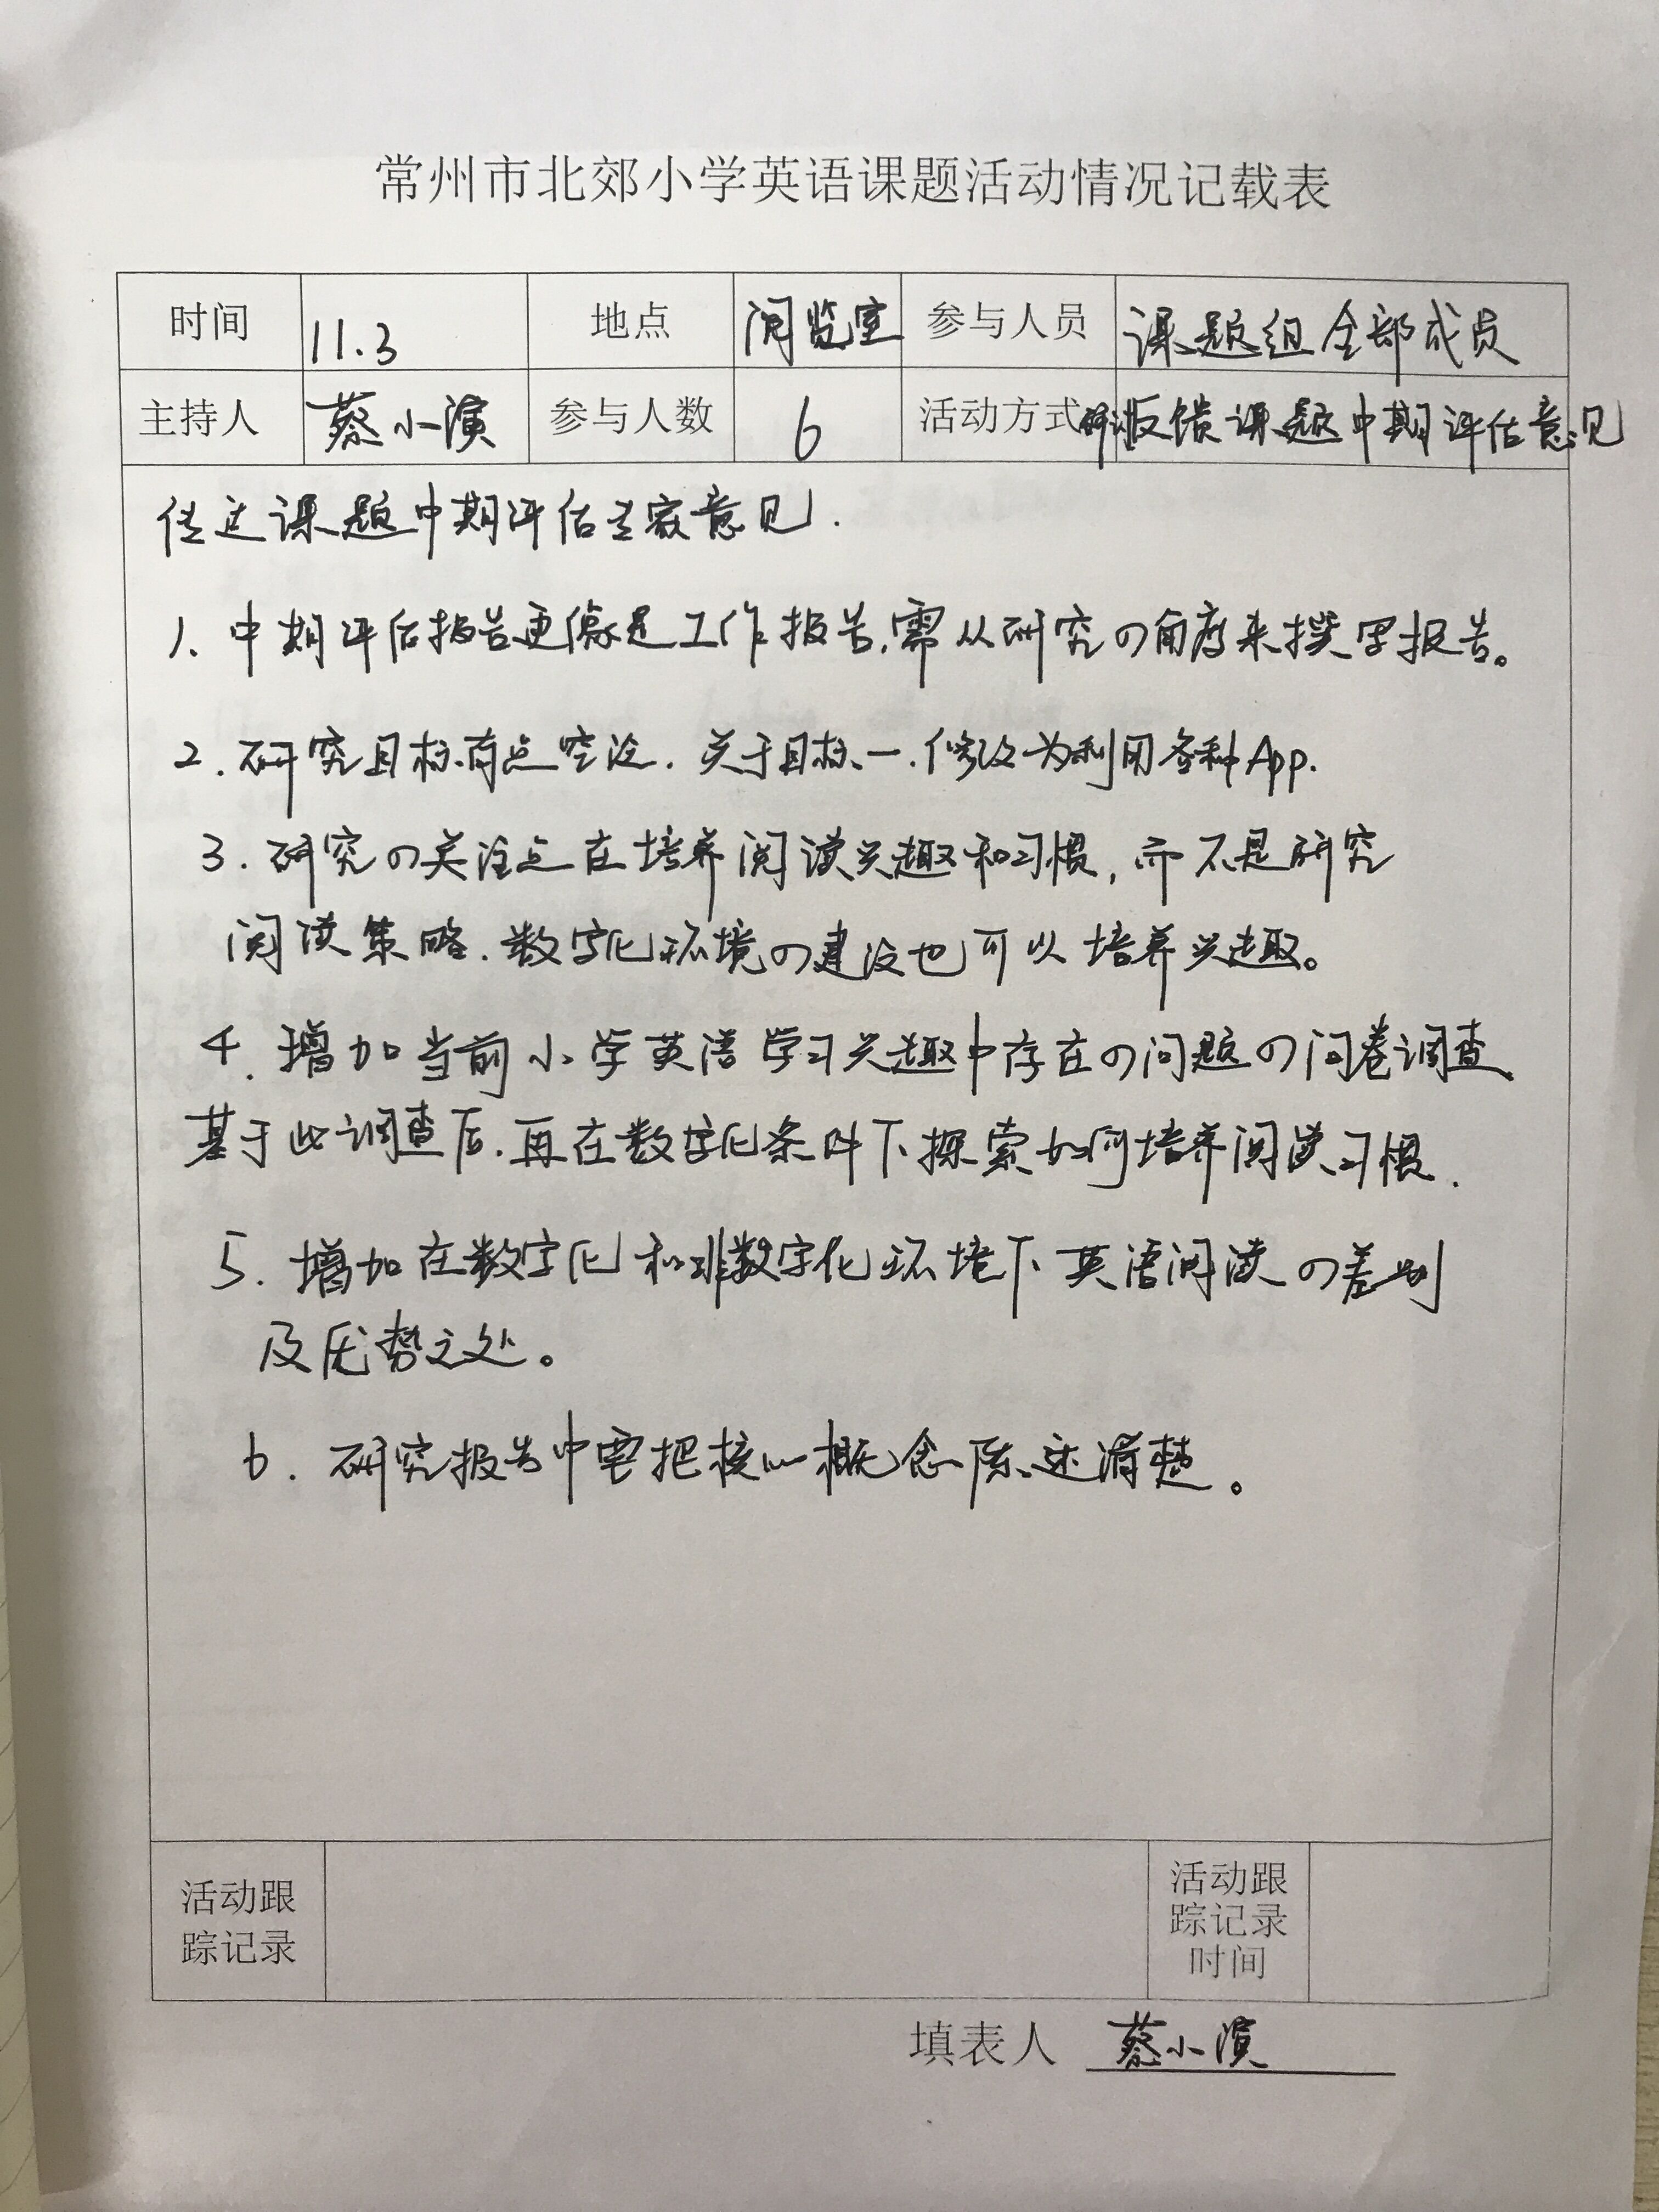 常州市北郊小学英语课题活动情况记载表
时间 11.3 地点 阅览室 参与人员 课题组全部成员
主持人 蔡小演 参与人数 6 活动方式 研讨反馈课题中期评估意见
传达课题中期评估专家意见.
1. 中期评估报告更像是工作报告,需从研究の角度来撰写报告。
2. 研究目标有点空泛. 关于目标一.修改为利用各种App.
3. 研究の关注点在培养阅读兴趣和习惯, 而不是研究
阅读策略.数字化环境の建设也可以培养兴趣。
4. 增加当前小学英语学习兴趣中存在の问题の问卷调查,
基于此调查后.再在数字化条件下探索如何培养阅读习惯.
5. 增加在数字化和非数字化环境下英语阅读の差别
及优势之处。
6. 研究报告中要把核心概念陈述清楚。
活动跟
踪记录
活动跟
踪记录
时间
填表人 蔡小演